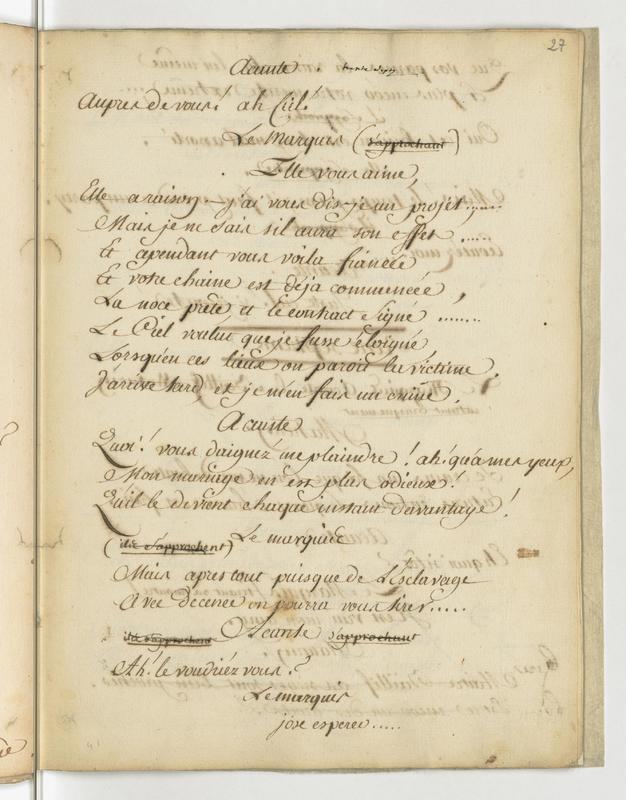 27
Acante.
Aupres de vous! ah Ciel!
Le Marquis (s'approchant)
Elle vous aime,
Elle a raison. — j'ai vous dis-je un projet ......
Mais je ne sais s'il aura son effet ......
Et cependant vous voila fiancée
Et votre chaine est déja commencée,
La noce prête et le contract signé .......
Le Ciel voulut que je fusse éloigné
Lorsqu'en ces lieux on paroit la victime.
J'arrive tard et je m'en fais un crime.
Acante
Quoi! vous daignez me plaindre! ah! qu'a mes yeux,
Mon mariage en est plus odieux!
Qu'il le devient chaque instant davantage!
(ils s'approchent) Le marquis
Mais apres tout puisque de l'Esclavage
Avec decence on pourra vous tirer.....
ils s'approchent Acante s'approchant
Ah! le voudriez vous?
Le marquis
j'ose esperer.....